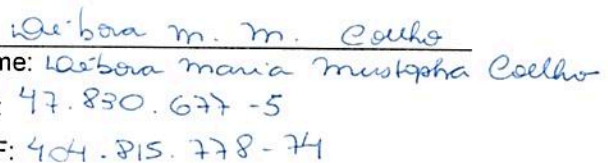 Débora m. m. Coelho
me: Débora maria mustapha Coelho
: 47.830.677-5
F: 404.815.778-74